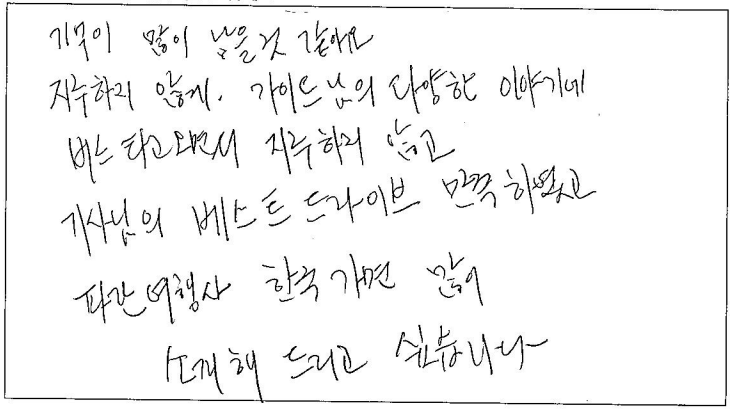 기억이 많이 남을것 같아요
지루하지 않게. 가이드님의 다양한 이야기에
버스 타고 오면서 지루하지 않고
기사님의 베스트 드라이브 만족하였고
파란여행사 한국 가면 많이
소개해 드리고 싶습니다~